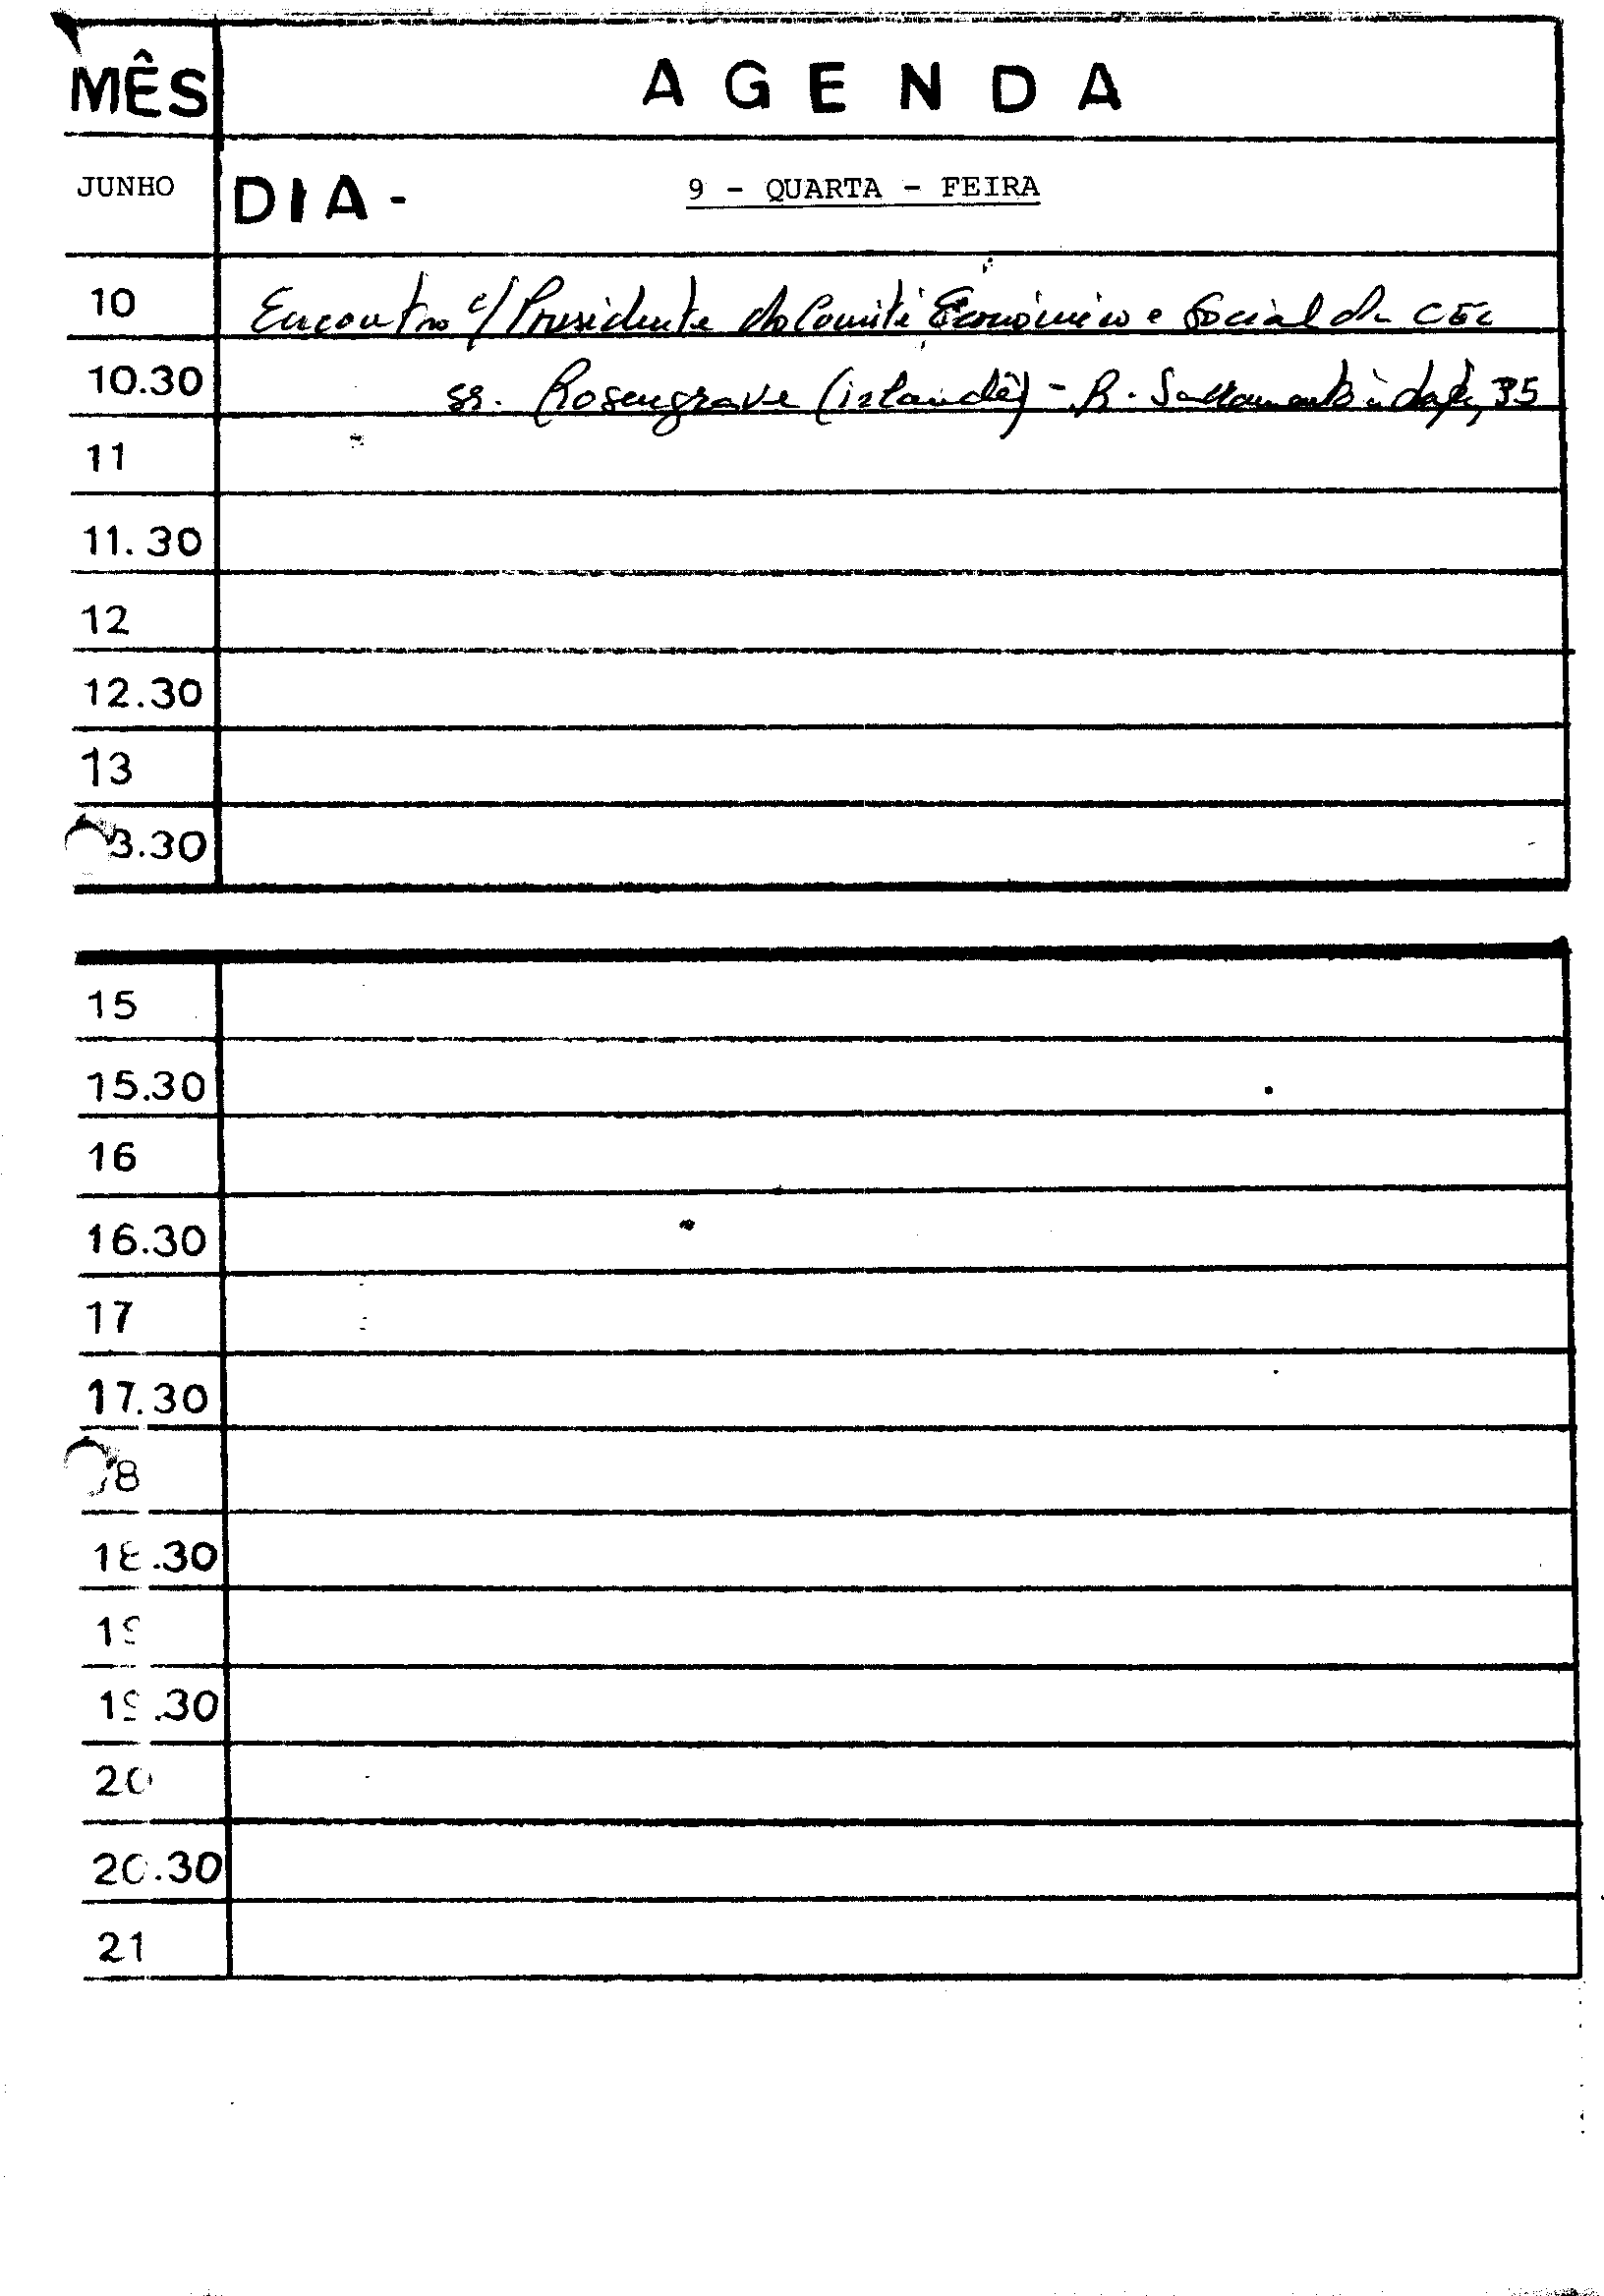 MÊS AGENDA
JUNHO DIA - 9 - QUARTA - FEIRA
10 Encontro c/ Presidente do Comité Económico e Social da CEE
10.30 sr. Rosengrave (irlandês) - R. Sacramento à Lapa, 35
11
11.30
12
12.30
13
3.30
15
15.30
16
16.30
17
17.30
18
18.30
19
19.30
20
20.30
21